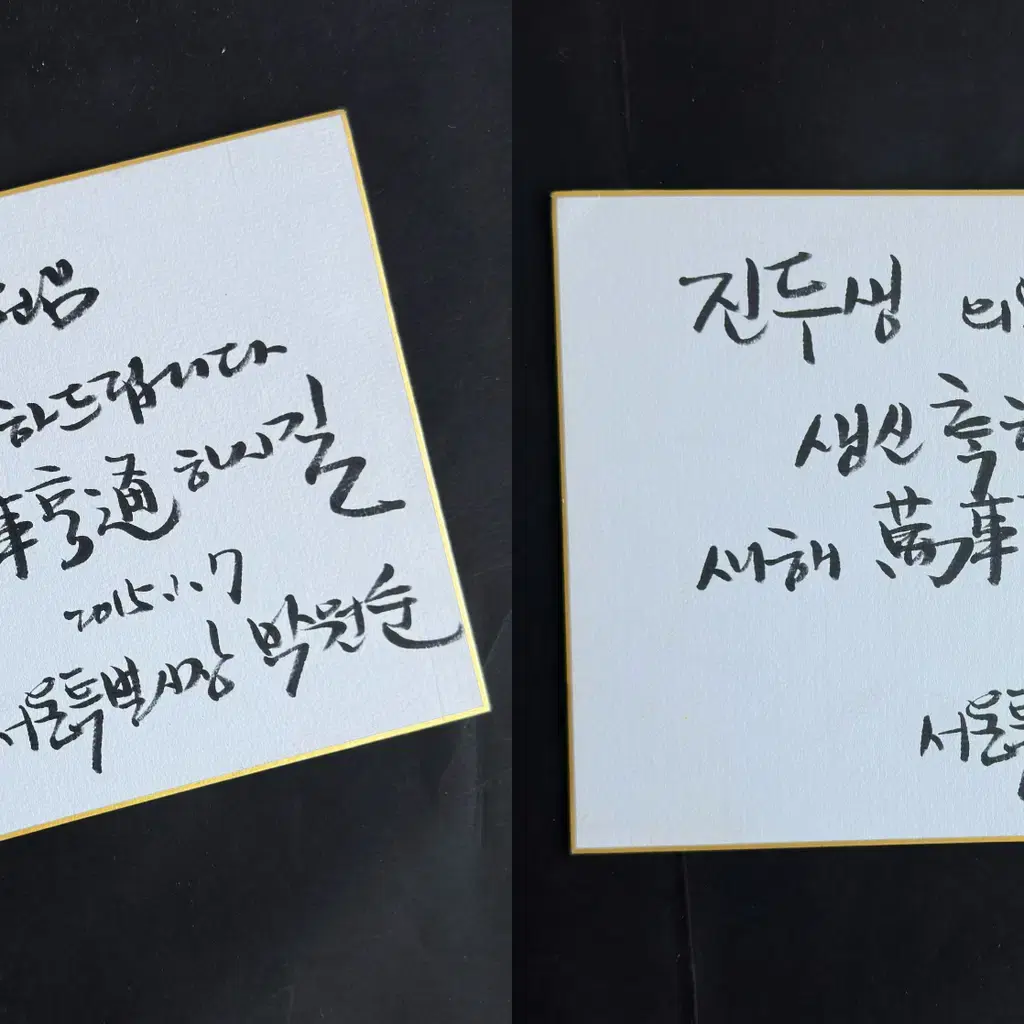 하드립니다
事亨通 하시길
2015.1.7
서울특별시장 박원순
진두생 의
생신 축하
새해 萬事
서울특